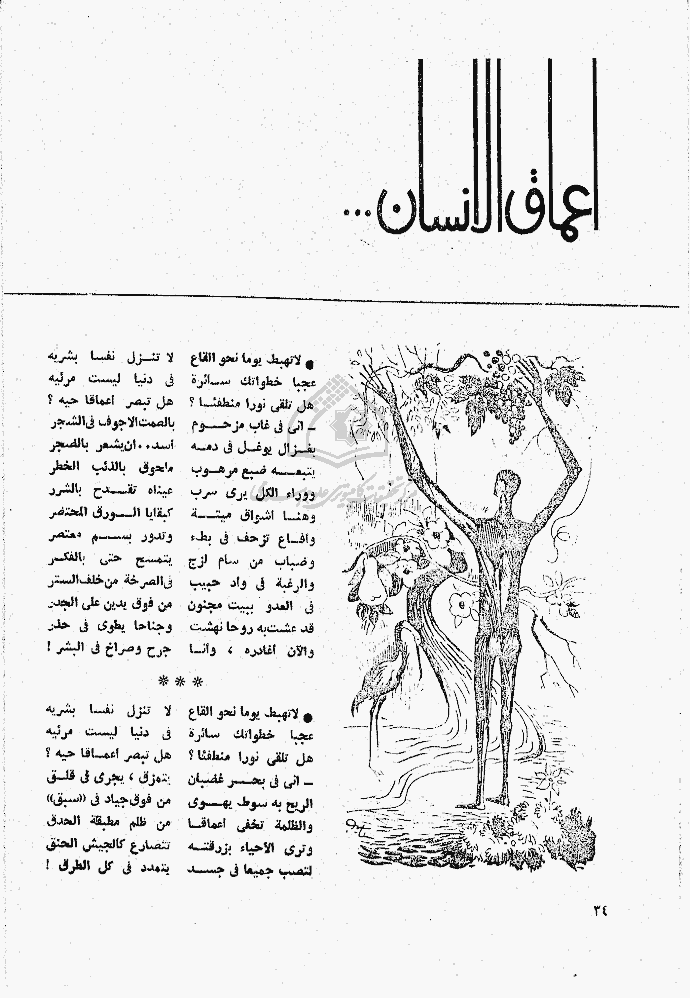 اعماق الانسان ...
● لاتهبط يوما نحو القاع لا تنزل نفسا بشريه
عجبا خطواتك سائرة فى دنيا ليست مرئيه
هل تلقى نورا منطفئا ؟ هل تبصر أعماقا حيه ؟
ـ انى فى غاب مزحوم بالصمت الاجوف فى الشجر
بغزال يوغل فى دمه أسد.. ان يشعر بالضجر
يتبعه ضبع مرهوب ملحوق بالذئب الخطر
ووراء الكل يرى سرب عيناه تقدح بالشرر
وهنا أشواق ميتة كبقايا الورق المحتضر
وأفاع تزحف فى بطء وتدور بسم معتصر
وضباب من سام لزج يتمسح حتى بالفكر
والرغبة فى واد حبيب فى الصرخة من خلف الستر
فى العدو ببيت مجنون من فوق يدين على الجدر
قد عشت به روحا نهشت وجناحا يطوى فى حذر
والآن أغادره ، وأنا جرح وصراخ فى البشر !
***
● لاتهبط يوما نحو القاع لا تنزل نفسا بشريه
عجبا خطواتك سائرة فى دنيا ليست مرئيه
هل تلقى نورا منطفئا ؟ هل تبصر أعماقا حيه ؟
ـ انى فى بحر غضبان يتمزق ، يجرى فى قلق
الريح به سوط يهوى من فوق جياد فى «سبق»
والظلمة تخفى أعماقا من ظلم مطبقة الحدق
وترى الأحياء بزرقته تتصارع كالجيش الحنق
لتصب جميعا فى جسد يتمدد فى كل الطرق !
٣٤